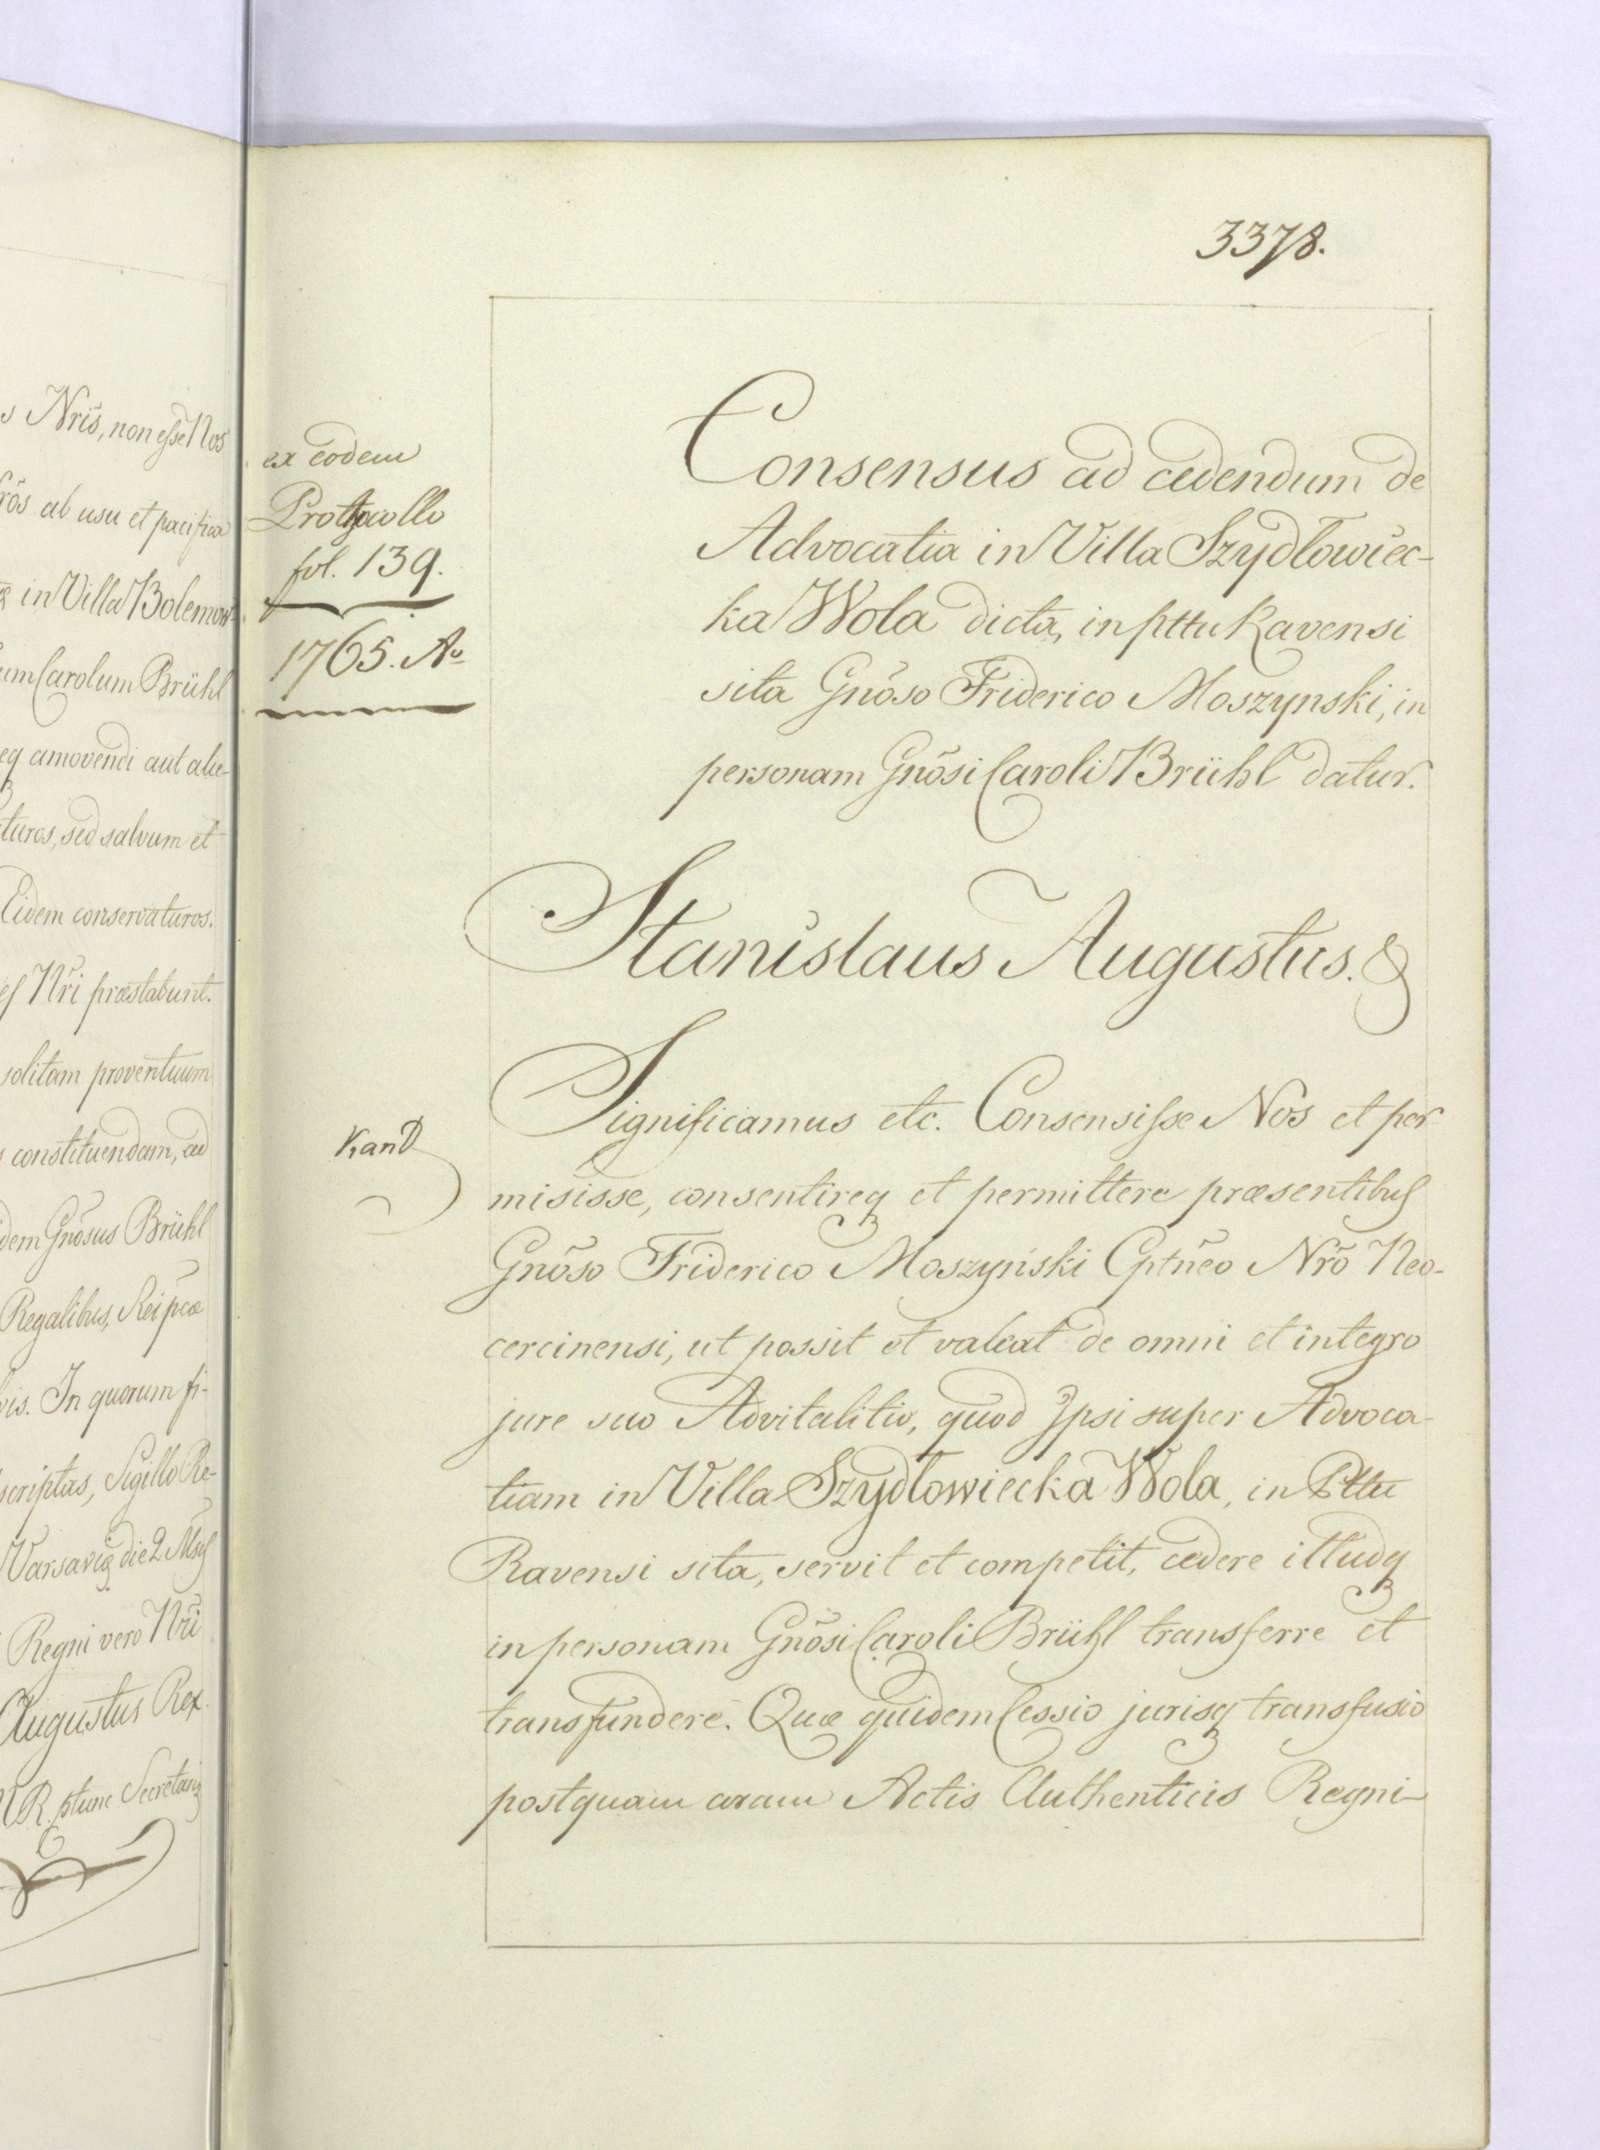 s Nrîs, non esse Nos
rôs ab usu et pacifica
in Villa Bolemow-
um Carolum Brühl
eq amovendi aut alie-
turos, sed salvum et
Eidem conservaturos.
Nri præstabunt.
solitam proventuum
constituendam, ad
dem Gnosus Brühl
Regalibus, Reipcæ
vis. In quorum fi-
scriptas, Sigillo Re-
Varsaviæ die 2 Msis
Regni vero Nri
Augustus Rex.
R. ptunc Secretarius
3378.
ex eodem
Protocollo
fol. 139.
1765. Ao
Consensus ad cedendum de
Advocatia in Villa Szydłowiec-
ka Wola dicta, in pttu Ravensi
sita Gnõso Friderico Moszynski, in
personam Gnõsi Caroli Brühl datur.
Stanislaus Augustus. &
KanD
Significamus etc. Consensisse Nos et per-
misisse, consentireq et permittere præsentibus
Gnõso Friderico Moszyński Cptñeo Nrõ Neo-
cercinensi, ut possit et valeat de omni et integro
jure suo Advitalitio, quod Ipsi super Advoca-
tiam in Villa Szydłowiecka Wola, in Pttu
Ravensi sita, servit et competit, cedere illudq
in personam Gnõsi Caroli Brühl transferre et
transfundere. Quæ quidem Cessio jurisq transfusio
postquam coram Actis Authenticis Regni